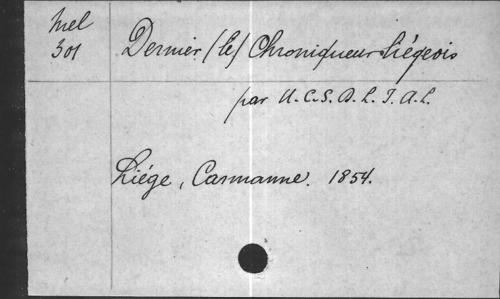 Mel
301
Dernier (le) Chroniqueur liégeois
par U. C. S. D. L. I. A. L.
Liége, Carmanne. 1854.